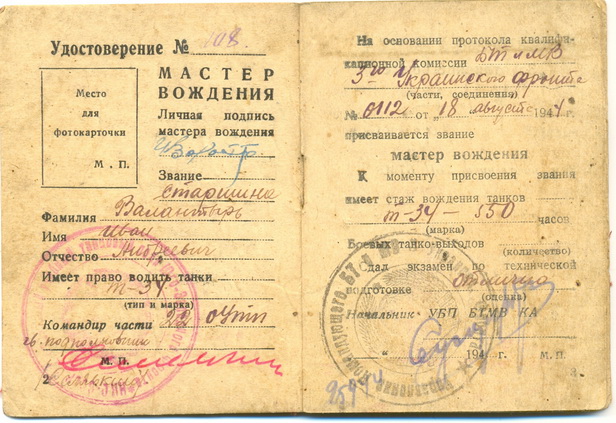 Удостоверение № 108
МАСТЕР
ВОЖДЕНИЯ
Место
для
фотокарточки
М. П.
Личная подпись
мастера вождения
Звание
старшина
Фамилия Валантырь
Имя Иван
Отчество Андреевич
Имеет право водить танки
т-34
(тип и марка)
Командир части 22 оутп
гв. подполковник
М. П.
На основании протокола квалифи-
кационной комиссии БТ и МВ
3го Украинского фронта
(части, соединения)
№ 0112 от „18 августа 1944 г.
присваивается звание
мастер вождения
К моменту присвоения звания
имеет стаж вождения танков
т-34 — 550 часов
(марка)
Боевых танко-выходов
(количество)
Сдал экзамен по технической
подготовке отлично
(оценка)
Начальник УБП БТМВ КА
„ “ 194 г. М. П.